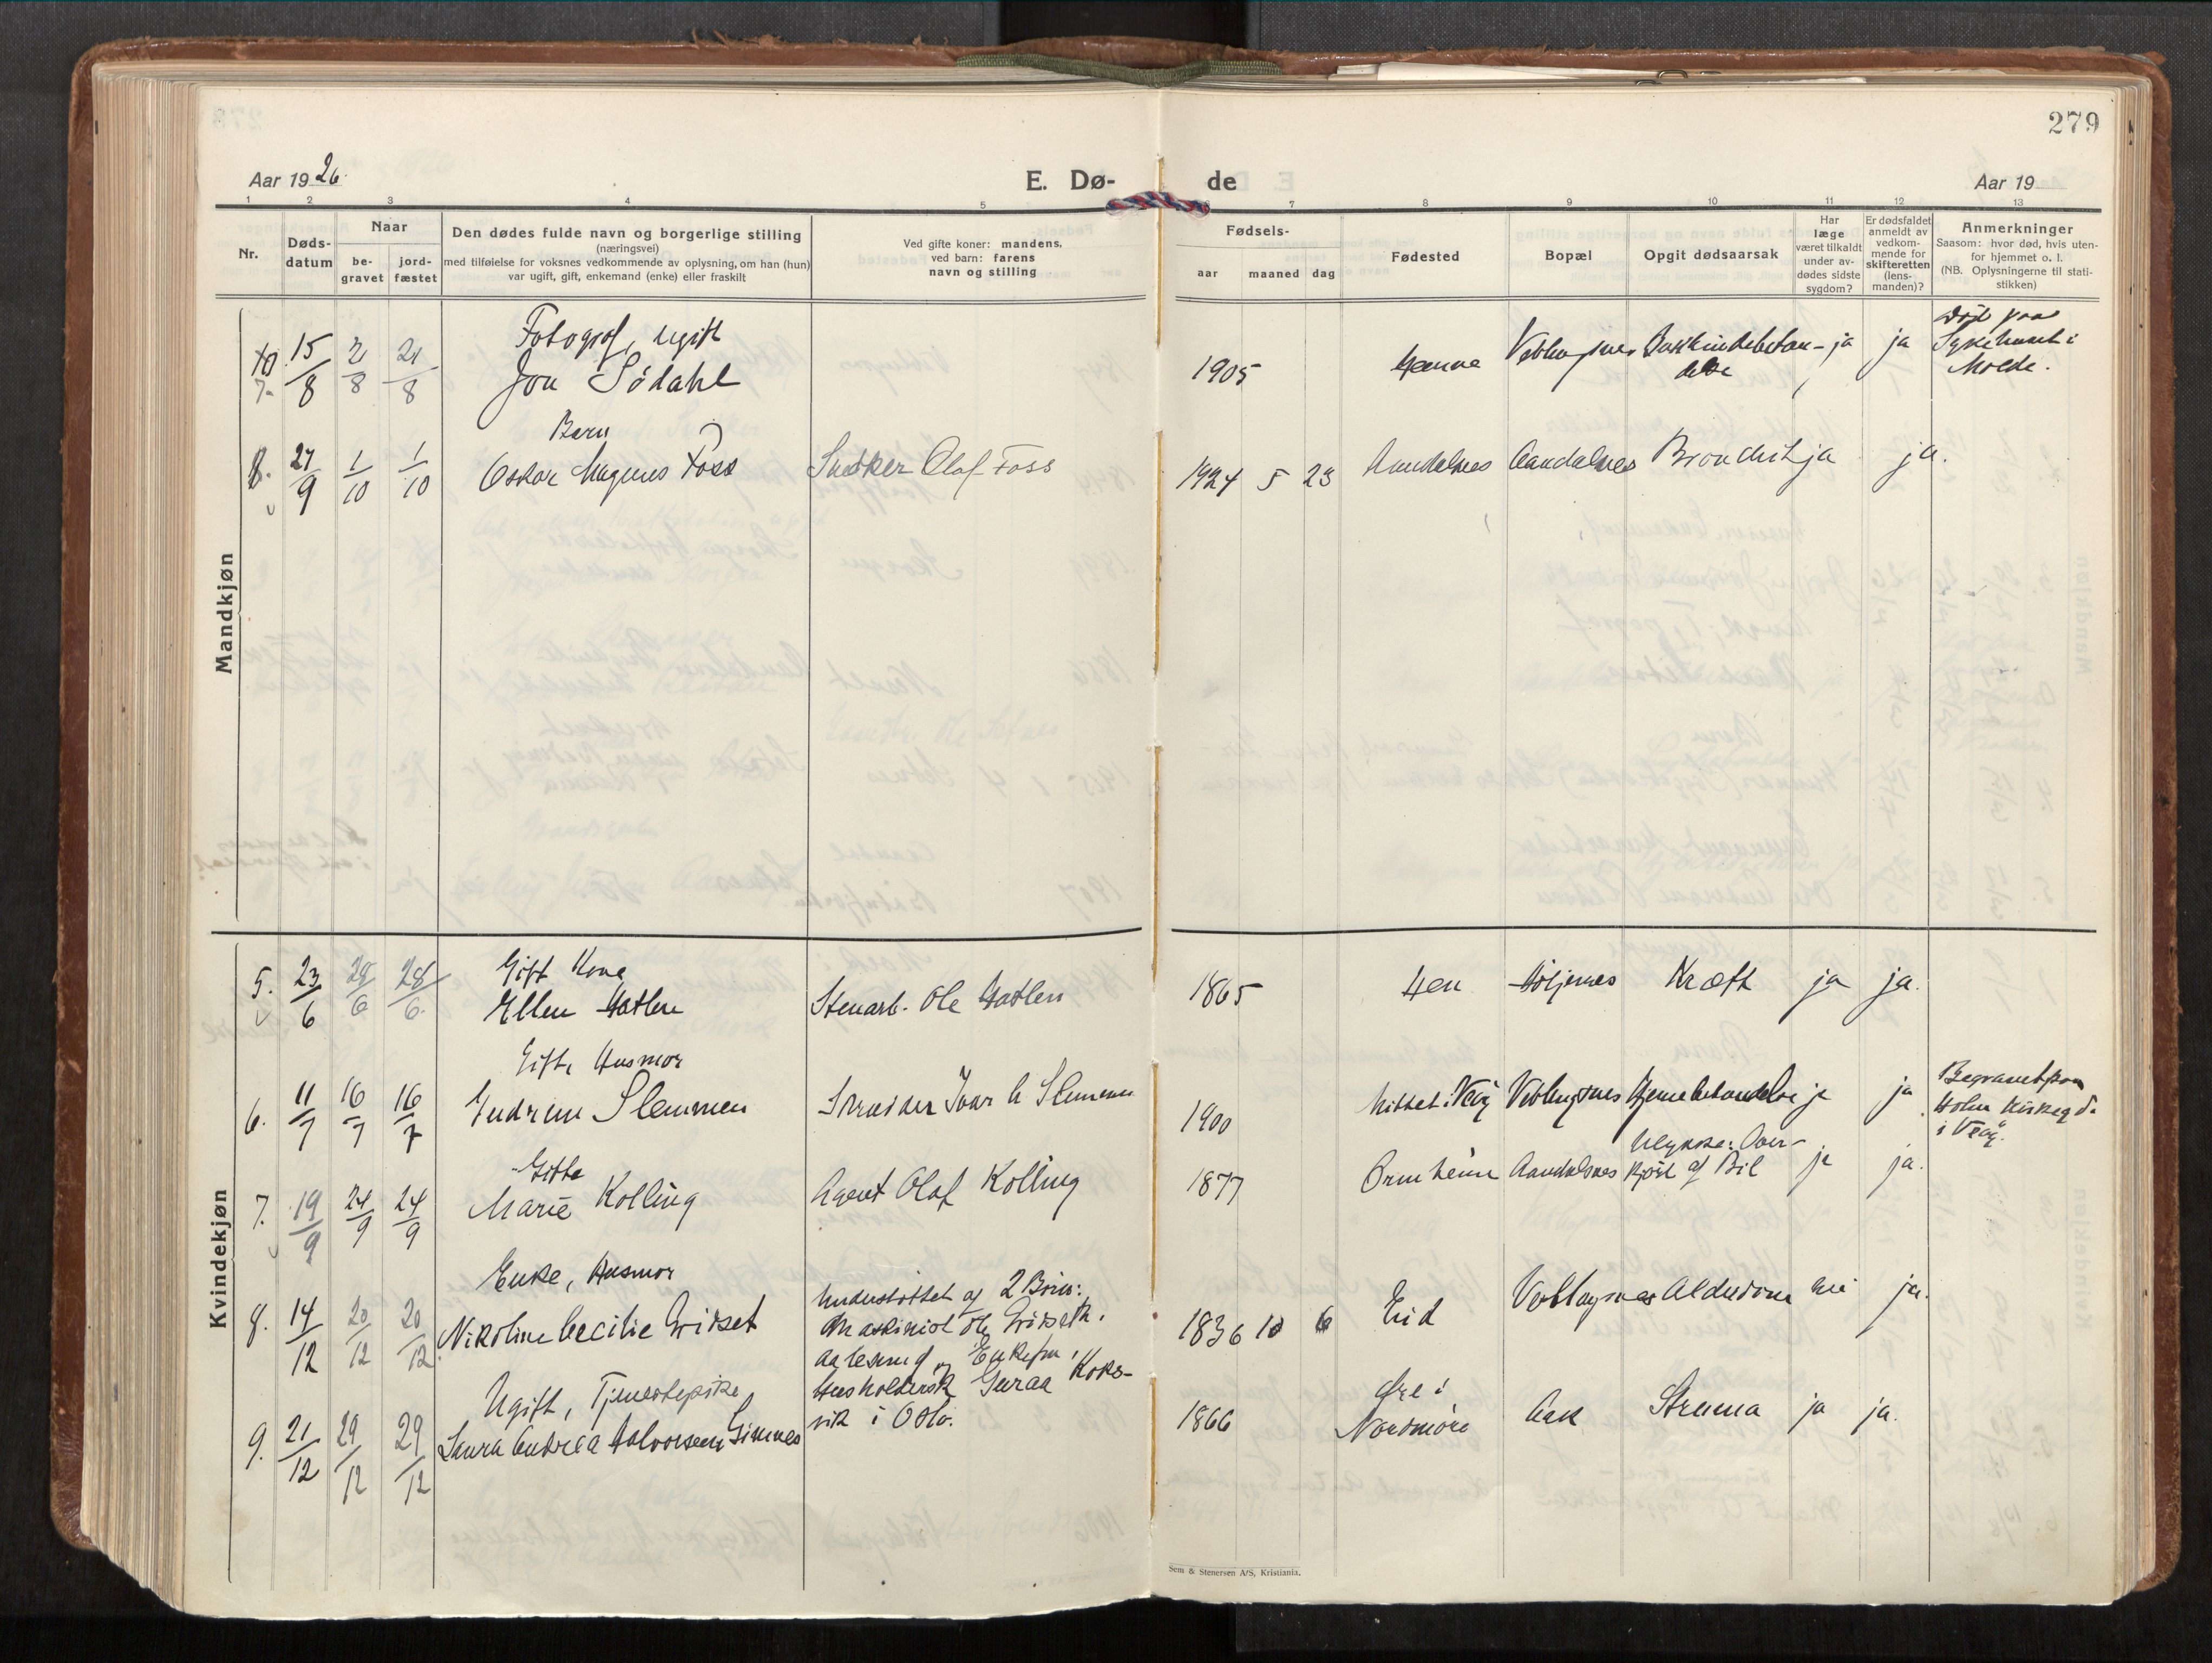 279
Aar 1926.
E. Dø-
de
Aar 19
1 2 3 4 5 6 7 8 9 10 11 12 13
Nr.
Døds-
datum
Naar
be-
gravet
jord-
fæstet
Den dødes fulde navn og borgerlige stilling
(næringsvei)
med tilføielse for voksnes vedkommende av oplysning, om han (hun)
var ugift, gift, enkemand (enke) eller fraskilt
Ved gifte koner: mandens,
ved barn: farens
navn og stilling
Fødsels-
aar maaned dag
Fødested
Bopæl
Opgit dødsaarsak
Har
læge
været tilkaldt
under av-
dødes sidste
sygdom?
Er dødsfaldet
anmeldt av
vedkom-
mende for
skifteretten
(lens-
manden)?
Anmerkninger
Saasom: hvor død, hvis uten-
for hjemmet o. l.
(NB. Oplysningerne til stati-
stikken)
Mandkjøn
Fotograf, ugift
7. 15/8 21/8 Jon Sødahl
1905 Veblugsnes ja ja
Død paa
Sykehuset i
Molde.
Barn
8. 27/9 1/10 1/10 Oskar Magnus Foss Snedker Olaf Foss
1924 5 23 Aandalsnes Aandalsnes Bronchit ja ja.
Kvindekjøn
Gift Kone
5. 23/6 28/6 28/6 Ellen Hatlen Stenarb. Ole Hatlen
1865 Hen Kræft ja ja.
Gift, Husmor
6. 11/7 16/7 16/7 Gudrun Slemmen Skrædder Ivar Slemmen
1900 i Veøy Veblugsnes Hjernebetændelse ja ja
Begravet paa
Holm Kirkegd.
i Veøy.
Gifte
7. 19/9 24/9 24/9 Marie Kolling Agent Olaf Kolling
Ulykke: Over-
1877 Ormheim Aandalsnes kjørt af Bil ja ja.
Enke, Husmor
8. 14/12 20/12 20/12 Nikoline Cecilie Gridset
Understøttet af 2 Børn:
Maskinist Ole Gridseth,
Aalesund og Enkefru,
Husholdersk Guraa Koks-
vik i Oslo.
1836 10 6 Eid Veblugsnes Alderdom nei ja.
Ugift, Tjenestepike
9. 21/12 29/12 29/12 Laura Andrea Halvorsen Gimnes
1866 Øre i
Nordmøre Aak Struma ja ja.
Sem & Stenersen A/S, Kristiania.